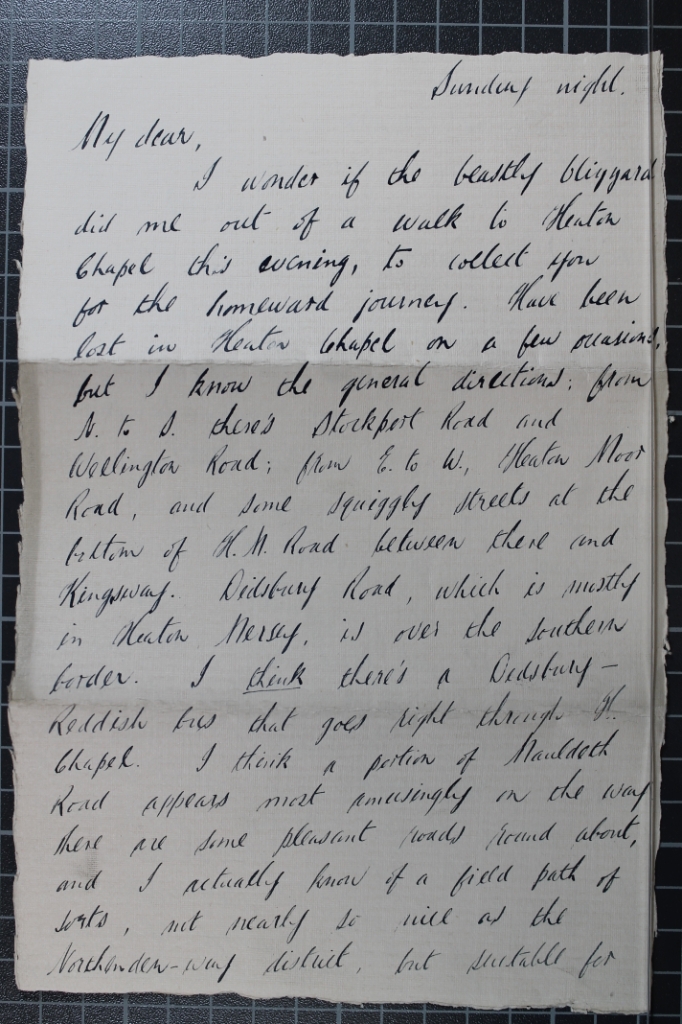 Sunday night.
My dear,
I wonder if the beastly blizzard
did me out of a walk to Heaton
Chapel this evening, to collect you
for the homeward journey. Have been
lost in Heaton Chapel on a few occasions,
but I know the general directions; from
N. to S. there's Stockport Road and
Wellington Road; from E. to W., Heaton Moor
Road, and some squiggly streets at the
bottom of H.M. Road between there and
Kingsway. Didsbury Road, which is mostly
in Heaton Mersey, is over the southern
border. I think there's a Didsbury-
Reddish bus that goes right through H.
Chapel. I think a portion of Mauldeth
Road appears most amusingly on the way
there are some pleasant roads round about,
and I actually know of a field path of
sorts, not nearly so nice as the
Northenden-way district, but suitable for